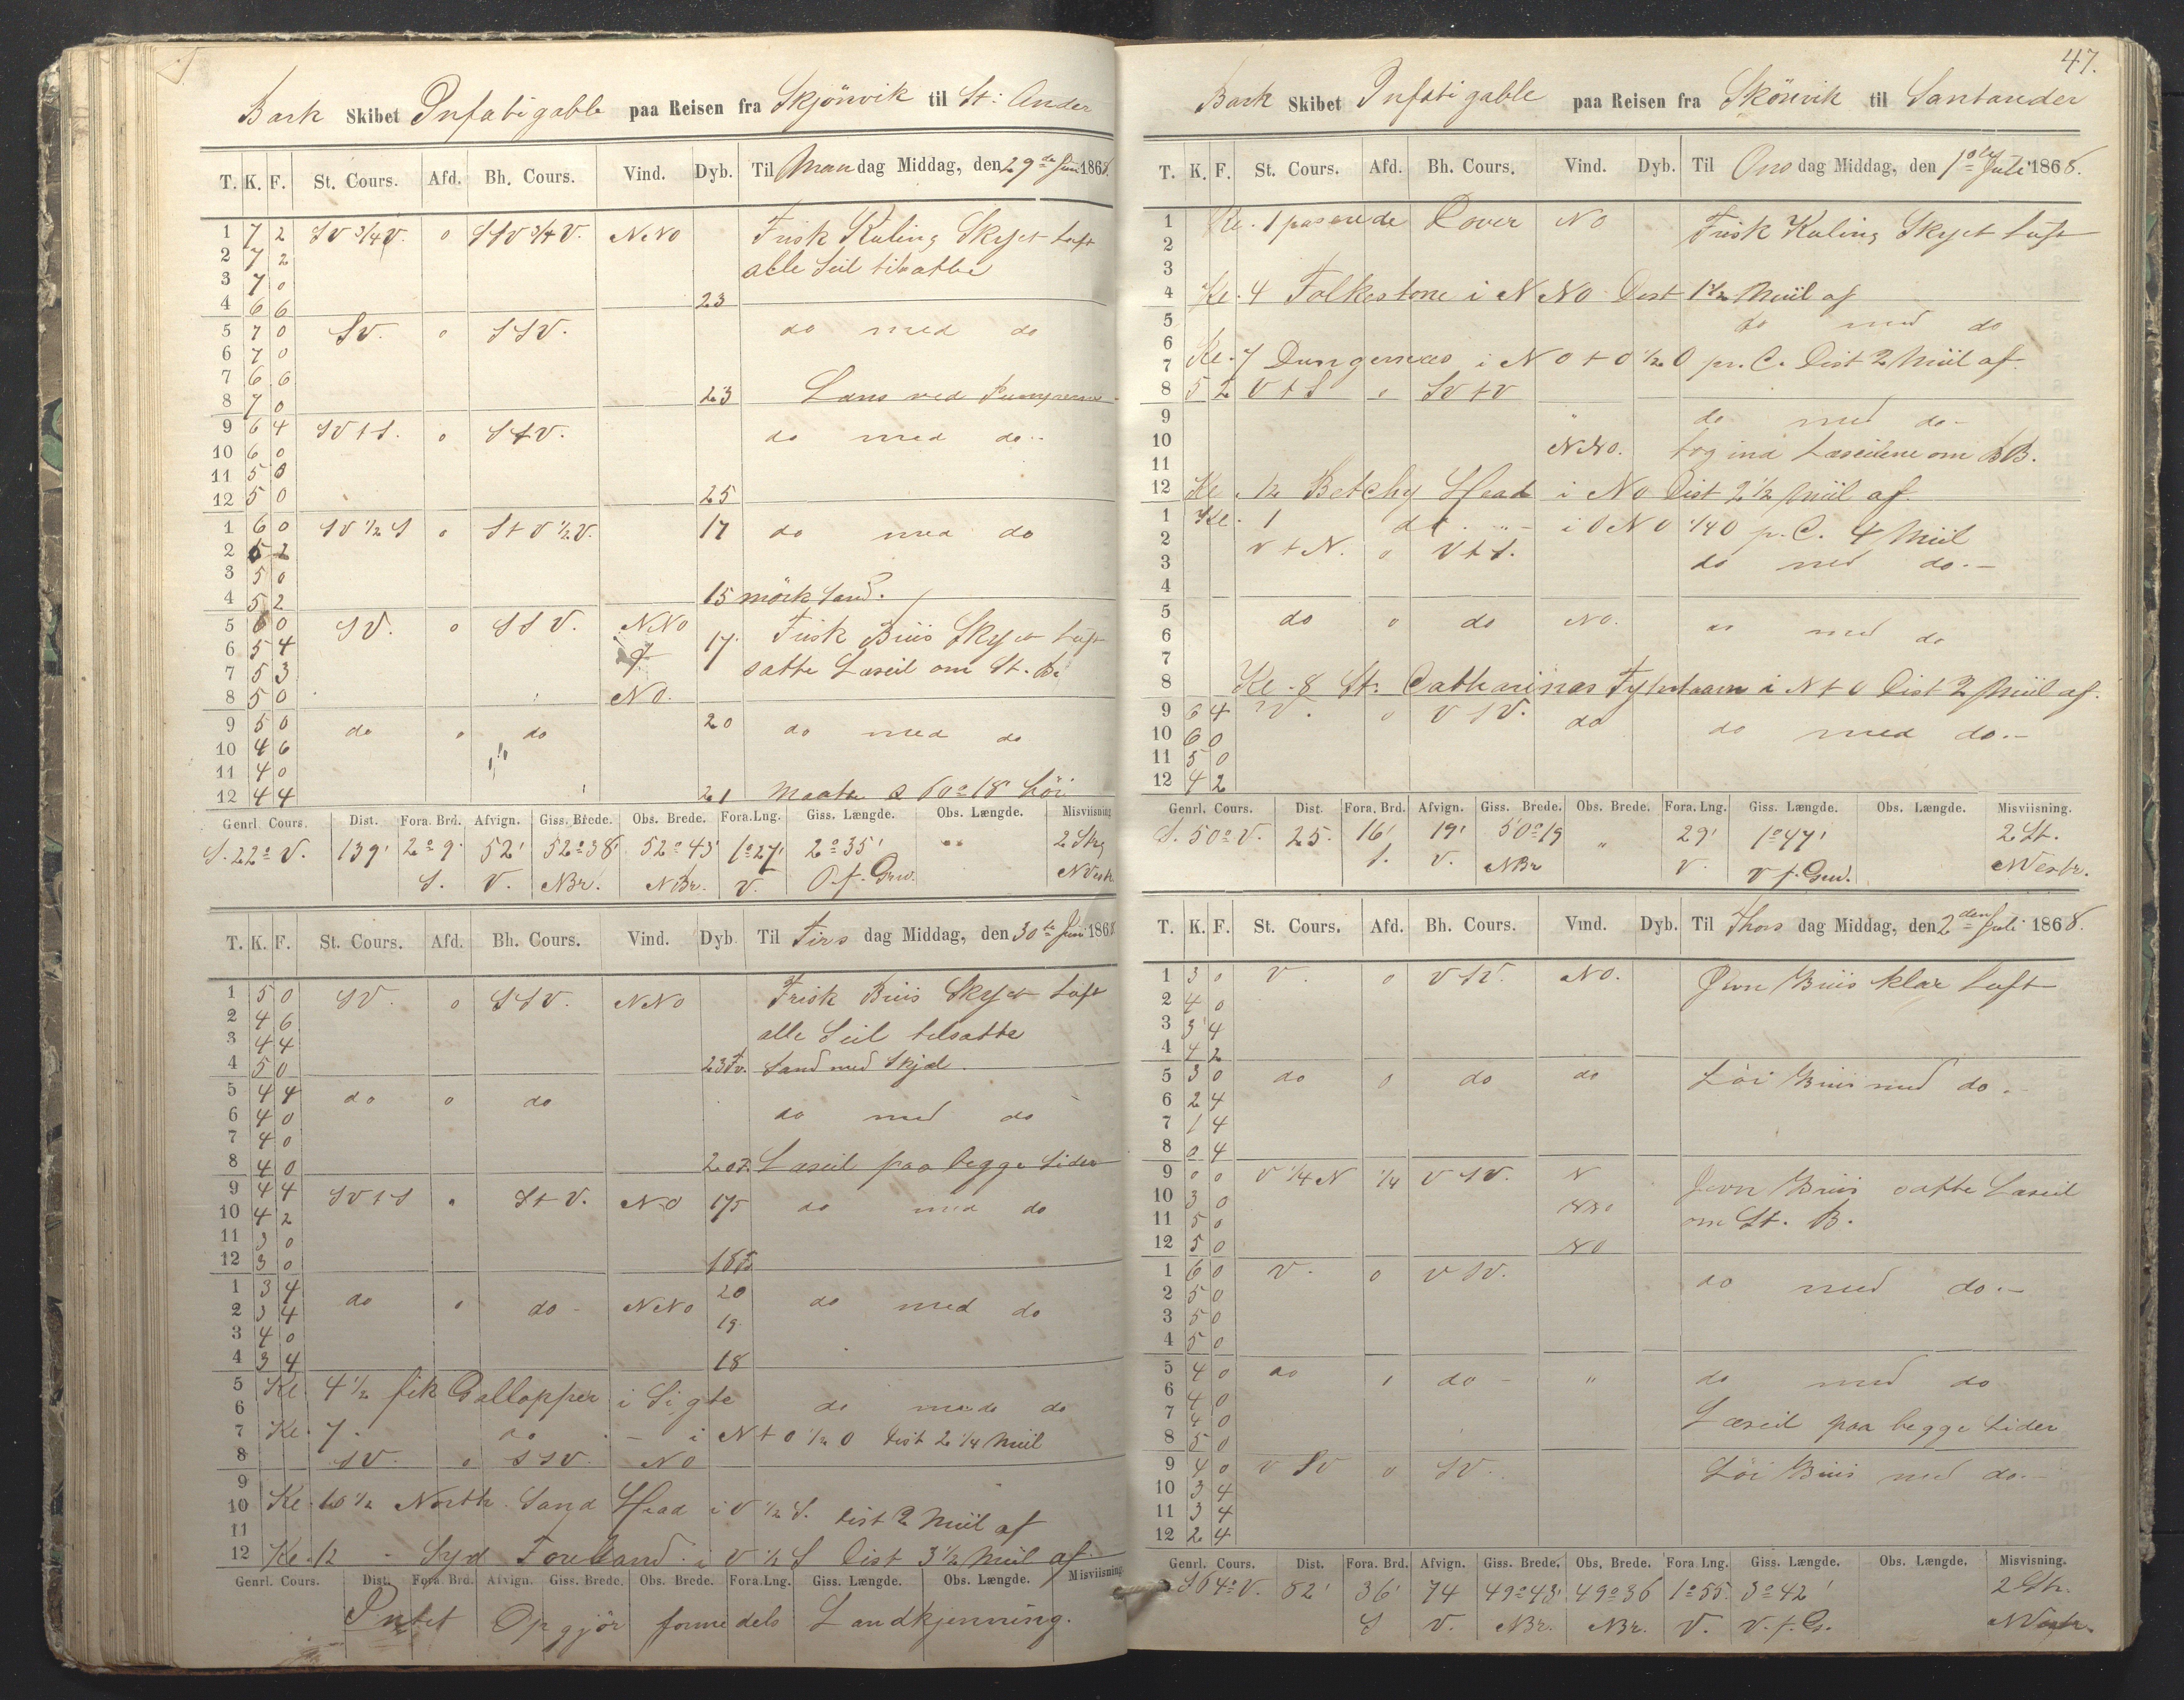 Bark Skibet Infatigable paa Reisen fra Skjönvik til St: Ander
T. K. F. St. Cours. Afd. Bh. Cours. Vind. Dyb. Til Mandag Middag, den 29de Juni 1868.
1 7 2 SV 3/4 V. 0 SSV 3/4 V. NNO Frisk Kuling Skyet Luft
2 7 2 alle Seil tilsatte
3 7 0
4 6 6 23
5 7 0 SV. 0 SSV. do med do
6 7 0
7 6 6
8 7 0 23 Læns ved Pumperne
9 6 4 SV t S. 0 S t V. do med do
10 6 0
11 5 0
12 5 0 25
1 6 0 SV 1/2 S 0 S t V 1/2 V. 17 do med do
2 5 2
3 5 0
4 5 2 15 mörk Sand.
5 6 0 SV. 0 SSV. NNO 17. Frisk Briis Skyet Luft
6 5 4 satte Læseil om St. B.
7 5 3
8 5 0 NO.
9 5 0 do 0 do 20 do med do
10 4 6
11 4 0
12 4 4 21 Maatte 60° 18'
Genrl. Cours. Dist. Fora. Brd. Afvign. Giss. Brede. Obs. Brede. Fora. Lng. Giss. Længde. Obs. Længde. Misviisning
S. 22° V. 139' 2° 9' 52' 52° 38' 52° 43' 1° 27' 2° 35' " 2 Strg
S. V. NBr. NBr. V. O. f. Grw. N Vestr
T. K. F. St. Cours. Afd. Bh. Cours. Vind. Dyb. Til Tirsdag Middag, den 30te Juni 1868
1 5 0 SV. 0 SSV. NNO Frisk Briis Skyet Luft
2 4 6 alle Seil tilsatte
3 4 4
4 5 0 23 Fv. Sand med Skjæl.
5 4 4 do 0 do
6 4 0 do med do
7 4 0
8 4 0 20 F. Læseil paa begge Sider
9 4 4 SV t S 0 S t V. NO 17 do med do
10 4 2
11 3 0
12 3 0 18
1 3 4 do 0 do NNO 20 do med do
2 3 4
3 4 0 19
4 3 4 18
5 Kl. 4 1/2 fik Gallopper i Sigte do med do
6
7 Kl. 7. do i N t O 1/2 O Dist 2 1/4 Miil
8 SV. 0 SSV. NO
9
10 Kl. 10 1/2 North Sand Head i V 1/2 S. Dist 2 Miil af
11
12 Kl. 12 Syd Foreland i V 1/2 S Dist 3 1/2 Miil af
Genrl. Cours. Dist. Fora. Brd. Afvign. Giss. Brede. Obs. Brede. Fora. Lng. Giss. Længde. Obs. Længde. Misviisning
Intet Opgjör formedels Landkjenning.
47.
Bark Skibet Infatigable paa Reisen fra Skönvik til Santander
T. K. F. St. Cours. Afd. Bh. Cours. Vind. Dyb. Til Onsdag Middag, den 1ste Juli 1868.
1 Kl. 1 passerede Dover NO Frisk Kuling Skyet Luft
2
3
4 Kl. 4 Folkestone i NNO Dist 1 1/2 Miil af
5 do med do
6
7 Kl. 7 Dungernæs i NO t O 1/2 O pr. C. Dist 2 Miil af
8 5 2 V t S 0 SV t V
9 " do med do
10 NNO. tog ind Læseilene om BB.
11
12 Kl. 12 Betchy Head i NO Dist 2 1/2 Miil af
1 Kl. 1 do i ONO 1/4 O p. C. 4 Miil
2 V t N. 0 V t S.
3 do med do.
4
5 do 0 do NO. do med do
6
7
8 Kl. 8 St. Catharinas Fyhrtaarn i N t O Dist 2 Miil af.
9 6 4 V. 0 VSV. do do med do.
10 6 0
11 5 0
12 4 2
Genrl. Cours. Dist. Fora. Brd. Afvign. Giss. Brede. Obs. Brede. Fora. Lng. Giss. Længde. Obs. Længde. Misviisning.
S. 50° V. 25. 16' 19' 50° 19 " 29' 1° 47' 2 St.
S. V. NBr V. V f. Grw. N Vestr.
T. K. F. St. Cours. Afd. Bh. Cours. Vind. Dyb. Til Thorsdag Middag, den 2den Juli 1868.
1 3 0 V. 0 VSV. NO. Jevn Briis klar Luft
2 4 0
3 3 4
4 4 2
5 3 0 do 0 do do Löi Briis med do.
6 2 4
7 1 4
8 0 4
9 0 0 V 1/4 N 1/4 VSV. N Jevn Briis satte Læseil
10 3 0 NNO om St. B.
11 5 0
12 5 0 NO
1 6 0 V. 0 VSV. do med do.
2 5 0
3 5 0
4 5 0
5 4 0 do do " do med do
6 4 0
7 4 0 Læseil paa begge Sider
8 5 0
9 4 0 VSV 0 SV. Löi Briis med do.
10 3 4
11 3 4
12 2 4
Genrl. Cours. Dist. Fora. Brd. Afvign. Giss. Brede. Obs. Brede. Fora. Lng. Giss. Længde. Obs. Længde. Misvisning.
S 64° V. 82' 36' 74 49° 43' 49° 36 1° 55. 3° 42' 2 Str.
S V. NBr. NBr. V. V. f. Gr. N Vestr.